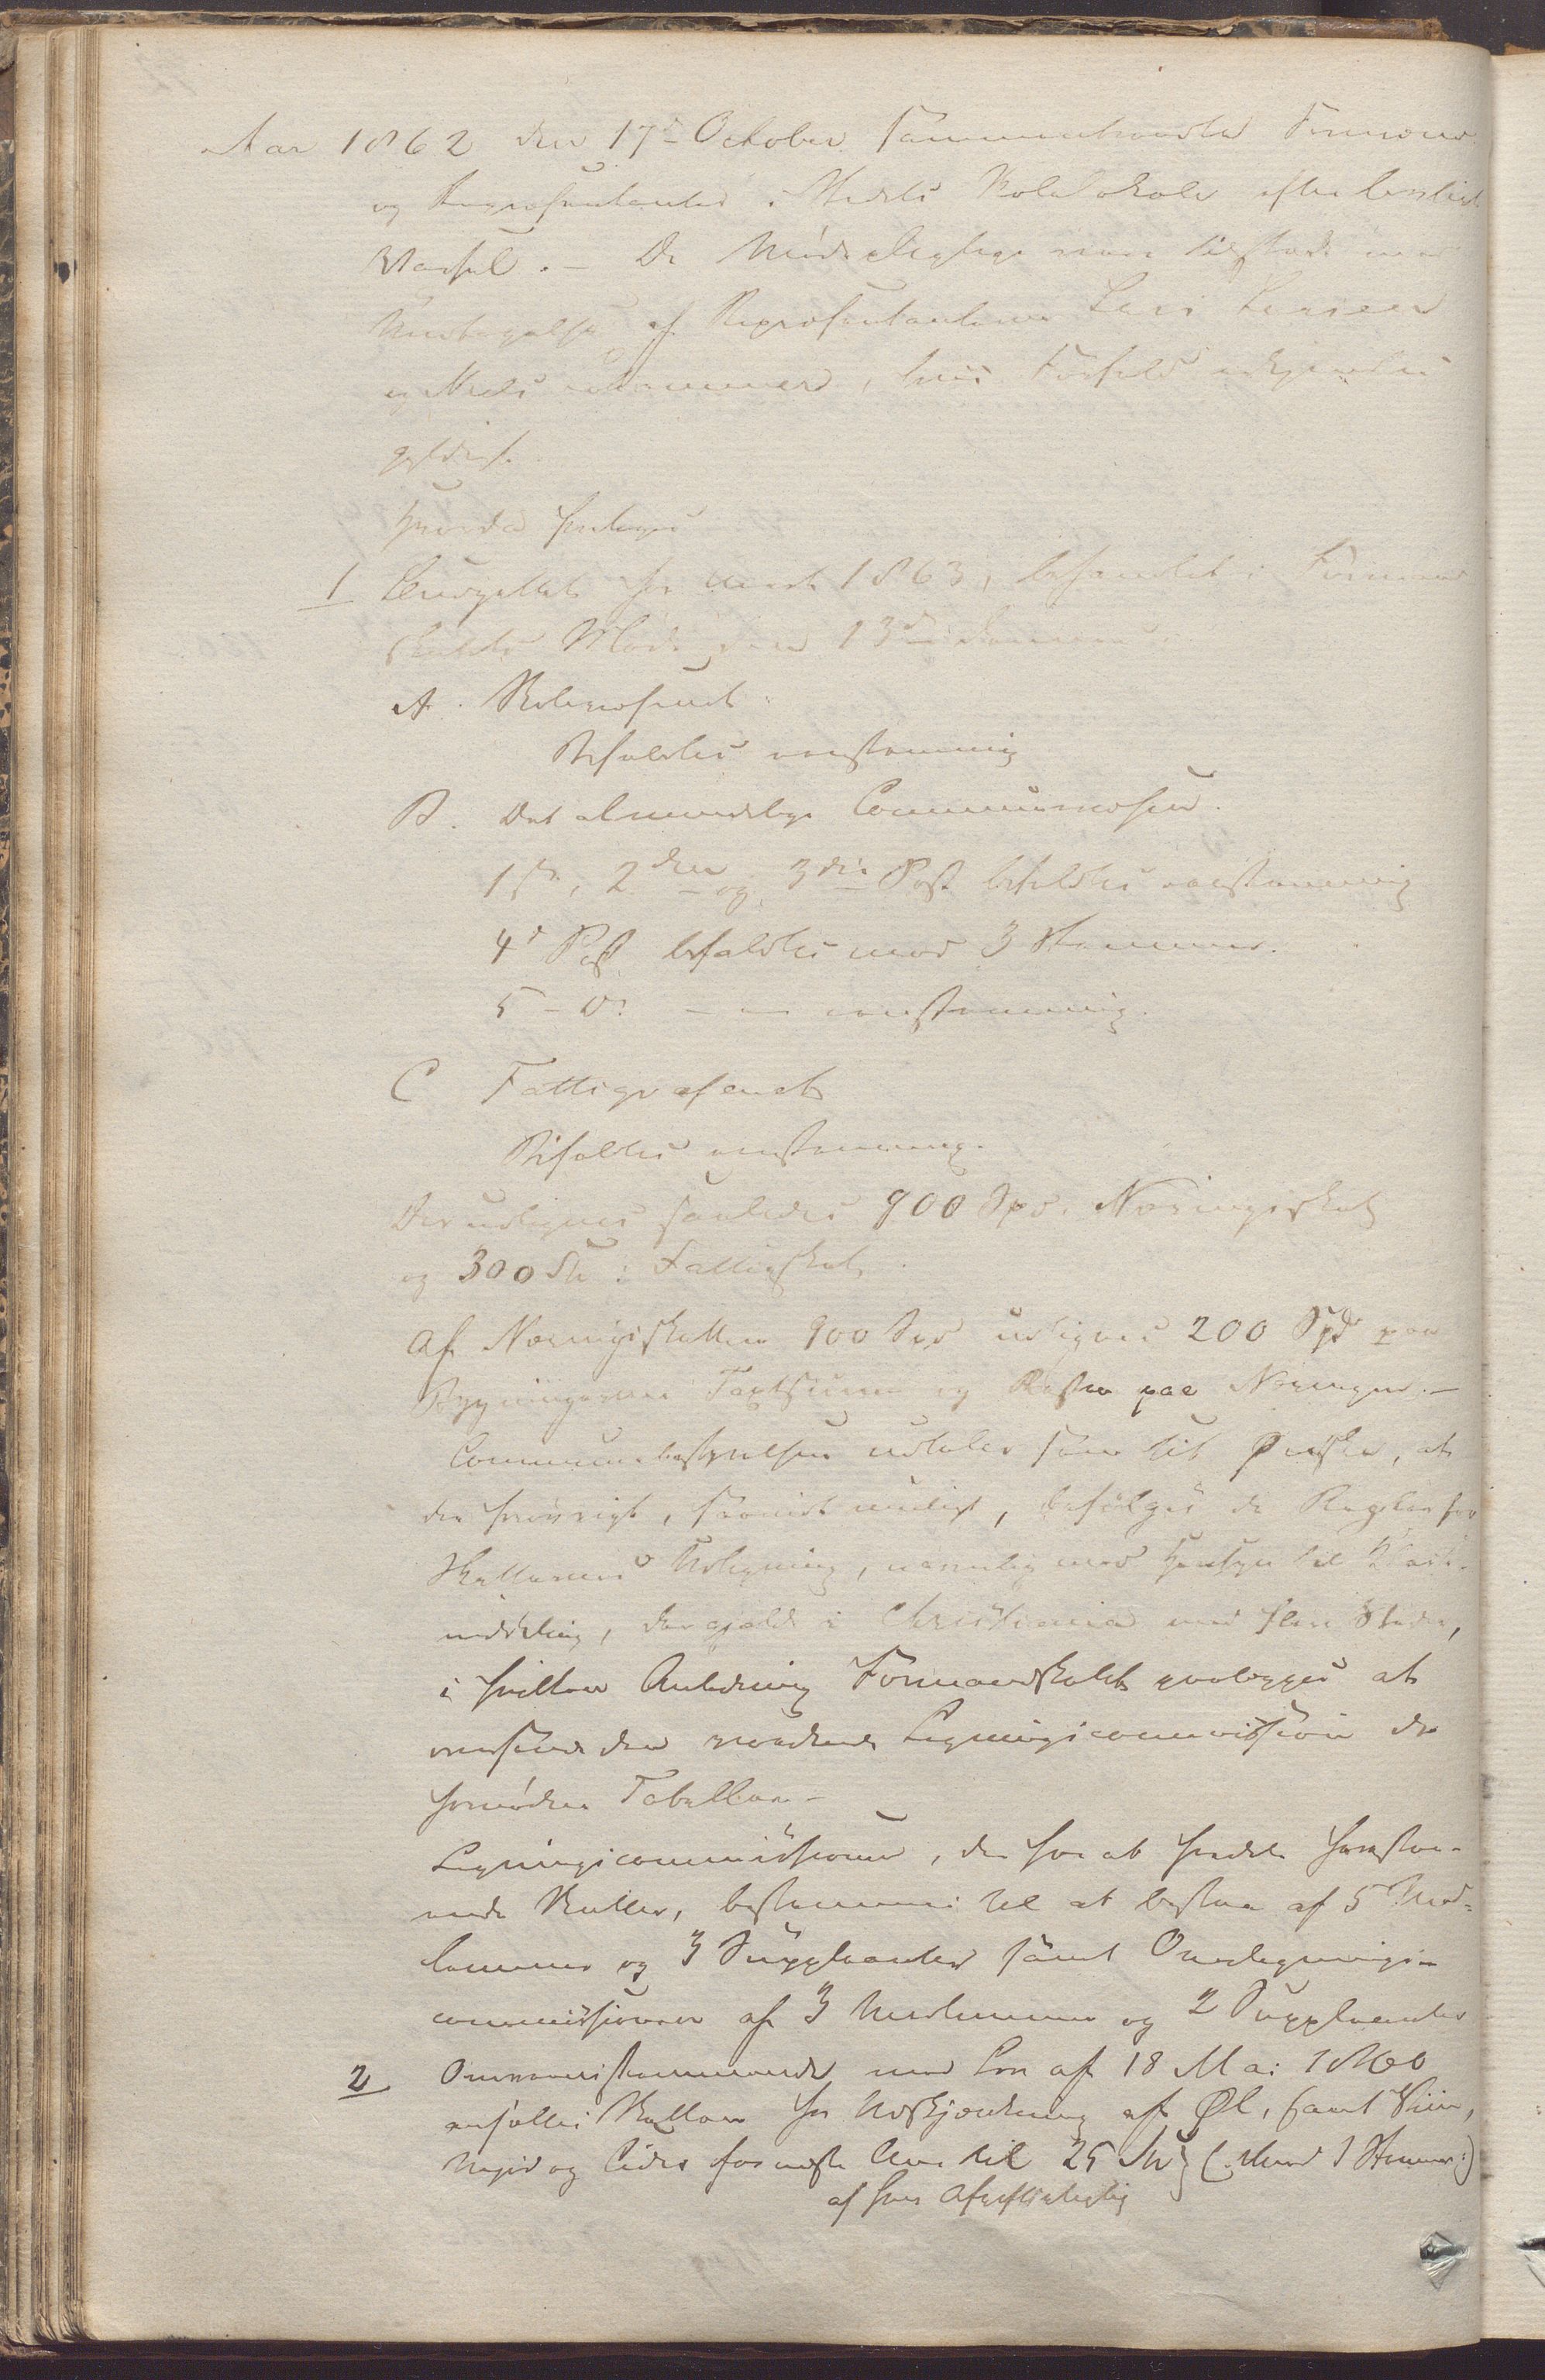 Aar 1862 den 17de October sammentraadte Formænd
og Repræsentanter i Stedets Skolelokale efter lovligt
Varsel. – De Mødepligtige vare tilstede med
Undtagelse af Repræsentanterne Lars Larsen
og Niels , hvis Forfald erkjendtes
gyldigt.
Hvorda foretoges
1 Budgettet for Aaret 1863, behandlet i Formand
skabets Møde den 13de dennes:
A. Skolevæsenet:
Bifaldtes eenstemmig
B. Det almindelige Communevæsen.
1ste, 2den og 3die Post bifaldtes eenstemmig
4d Post bifaldtes mod 3 Stemmer.
5 – D: – – eenstemmig.
C Fattigvæsenet
Bifaldtes eenstemmig.
Der udlignes saaledes 900 Spd. Næringsskat
og 300 Sp: Fattigskat.
Af Næringsskatten 900 Spd udlignes 200 Spd paa
Bygningernes Taxtsum og Resten paa Næringen. –
Communebestyrelsen udtaler som sit Ønske, at
der forøvrigt, saavidt muligt, befølges de Regler for
Skatternes Udligning, navnlig med Hensyn til Klasse-
inddeling, der gjælde i Christiania med flere Steder,
i hvilken Anledning Formandskabet paalægges at
oversende den vordende Ligningscommission de
fornødne Tabeller –
Ligningscommissionen, der for at fordele foresta-
aende Skatter, bestemmes til at bestaa af 5 Med=
lemmer og 3 Suppleanter samt Overligningss-
commissionen af 3 Medlemmer og 2 Suppleanter
2 Overensstemmende med Lov af 18 Mai 1860
ansattes Skatten for Udskjænkning af Øl, samt Viin,
Mjød og Cider for næste Aar til 25 Spd (: Mod 1 Stemme:)
af hver Afgiftspligtig